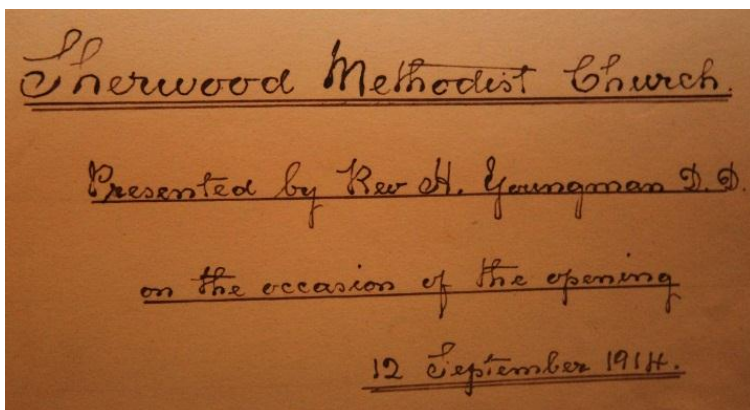 Sherwood Methodist Church.
Presented by Rev H. Youngman D.D.
on the occasion of the opening
12 September 1914.